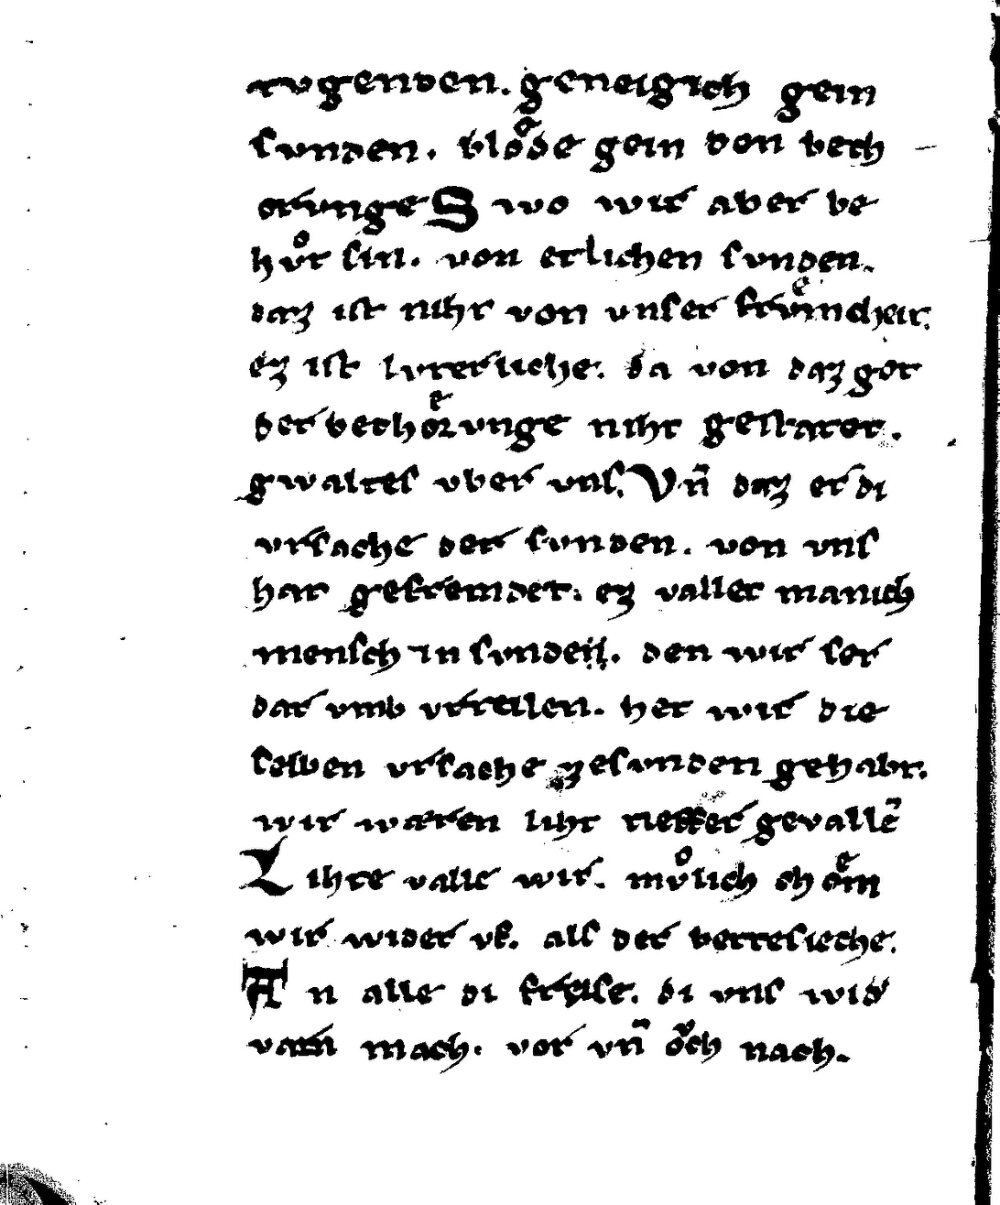 tugenden. geneigtch gein
ſunden. bloͤde gein den bech
orunge Swo wir aber be
huͦt ſin. von etlichen ſunden.
daz iſt niht von unſer fruͤmcheit.
ez iſt luterliche. da von daz got
der bechoͤrunge niht geſtatet.
gwaltes vber vnſ. Vn̄ daz er di
vrſache der ſunden. von vnſ
hat gefremdet. ez vallet manich
menſch in ſunden. den wir ſer
dar vmb vrteilen. het wir die
ſelben vrſache ze ſunden gehabt.
wir wæren liht tieffer gevallē
Lihte valle wir. muͦlich choͤm
wir wider vf. als der betteſieche.
An alle di freiſe. di vnſ wid
varn mach. vor vn̄ oͮch nach.